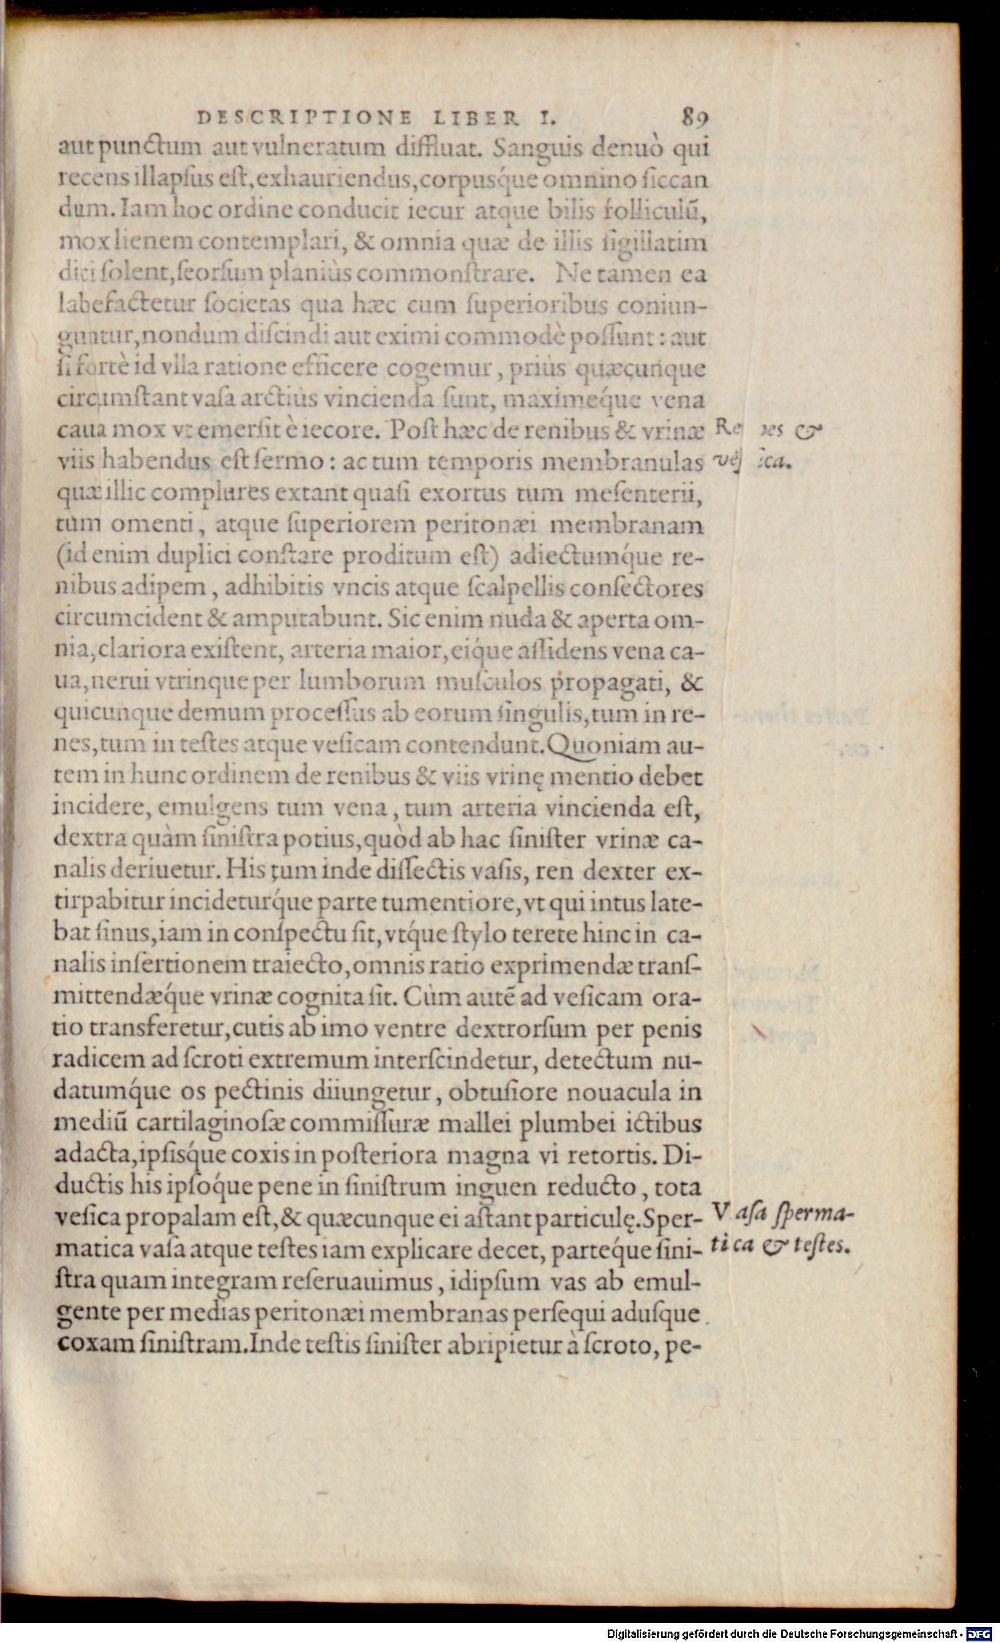 DESCRIPTIONE LIBER I. 89
aut punctum aut vulneratum diffluat. Sanguis denuò qui
recens illapsus est, exhauriendus, corpusq́ue omnino siccan
dum. Iam hoc ordine conducit iecur atque bilis folliculũ,
mox lienem contemplari, & omnia quæ de illis sigillatim
dici solent, seorsum planiùs commonstrare. Ne tamen ea
labefactetur societas qua hæc cum superioribus coniun-
guntur, nondum discindi aut eximi commodè possunt: aut
si fortè id vlla ratione efficere cogemur, priùs quæcunque
circumstant vasa arctiùs vincienda sunt, maximeq́ue vena
caua mox vt emersit è iecore. Post hæc de renibus & vrinæ
Renes &
viis habendus est sermo: ac tum temporis membranulas
vesica.
quæ illic complures extant quasi exortus tum mesenterii,
tùm omenti, atque superiorem peritonæi membranam
(id enim duplici constare proditum est) adiectumq́ue re-
nibus adipem, adhibitis vncis atque scalpellis consectores
circumcident & amputabunt. Sic enim nuda & aperta om-
nia, clariora existent, arteria maior, eiq́ue assidens vena ca-
ua, nerui vtrinque per lumborum musculos propagati, &
quicunque demum processus ab eorum singulis, tum in re-
nes, tum in testes atque vesicam contendunt. Quoniam au-
tem in hunc ordinem de renibus & viis vrinę mentio debet
incidere, emulgens tum vena, tum arteria vincienda est,
dextra quàm sinistra potius, quòd ab hac sinister vrinæ ca-
nalis deriuetur. His tum inde dissectis vasis, ren dexter ex-
tirpabitur incideturq́ue parte tumentiore, vt qui intus late-
bat sinus, iam in conspectu sit, vtq́ue stylo terete hinc in ca-
nalis insertionem traiecto, omnis ratio exprimendæ trans-
mittendæq́ue vrinæ cognita sit. Cùm autẽ ad vesicam ora-
tio transferetur, cutis ab imo ventre dextrorsum per penis
radicem ad scroti extremum interscindetur, detectum nu-
datumq́ue os pectinis diiungetur, obtusiore nouacula in
mediũ cartilaginosæ commissuræ mallei plumbei ictibus
adacta, ipsisq́ue coxis in posteriora magna vi retortis. Di-
ductis his ipsoq́ue pene in sinistrum inguen reducto, tota
vesica propalam est, & quæcunque ei astant particulę. Sper-
Vasa sperma-
matica vasa atque testes iam explicare decet, parteq́ue sini-
tica & testes.
stra quam integram reseruauimus, id ipsum vas ab emul-
gente per medias peritonæi membranas persequi adusque
coxam sinistram. Inde testis sinister abripietur à scroto, pe-
Digitalisierung gefördert durch die Deutsche Forschungsgemeinschaft - DFG